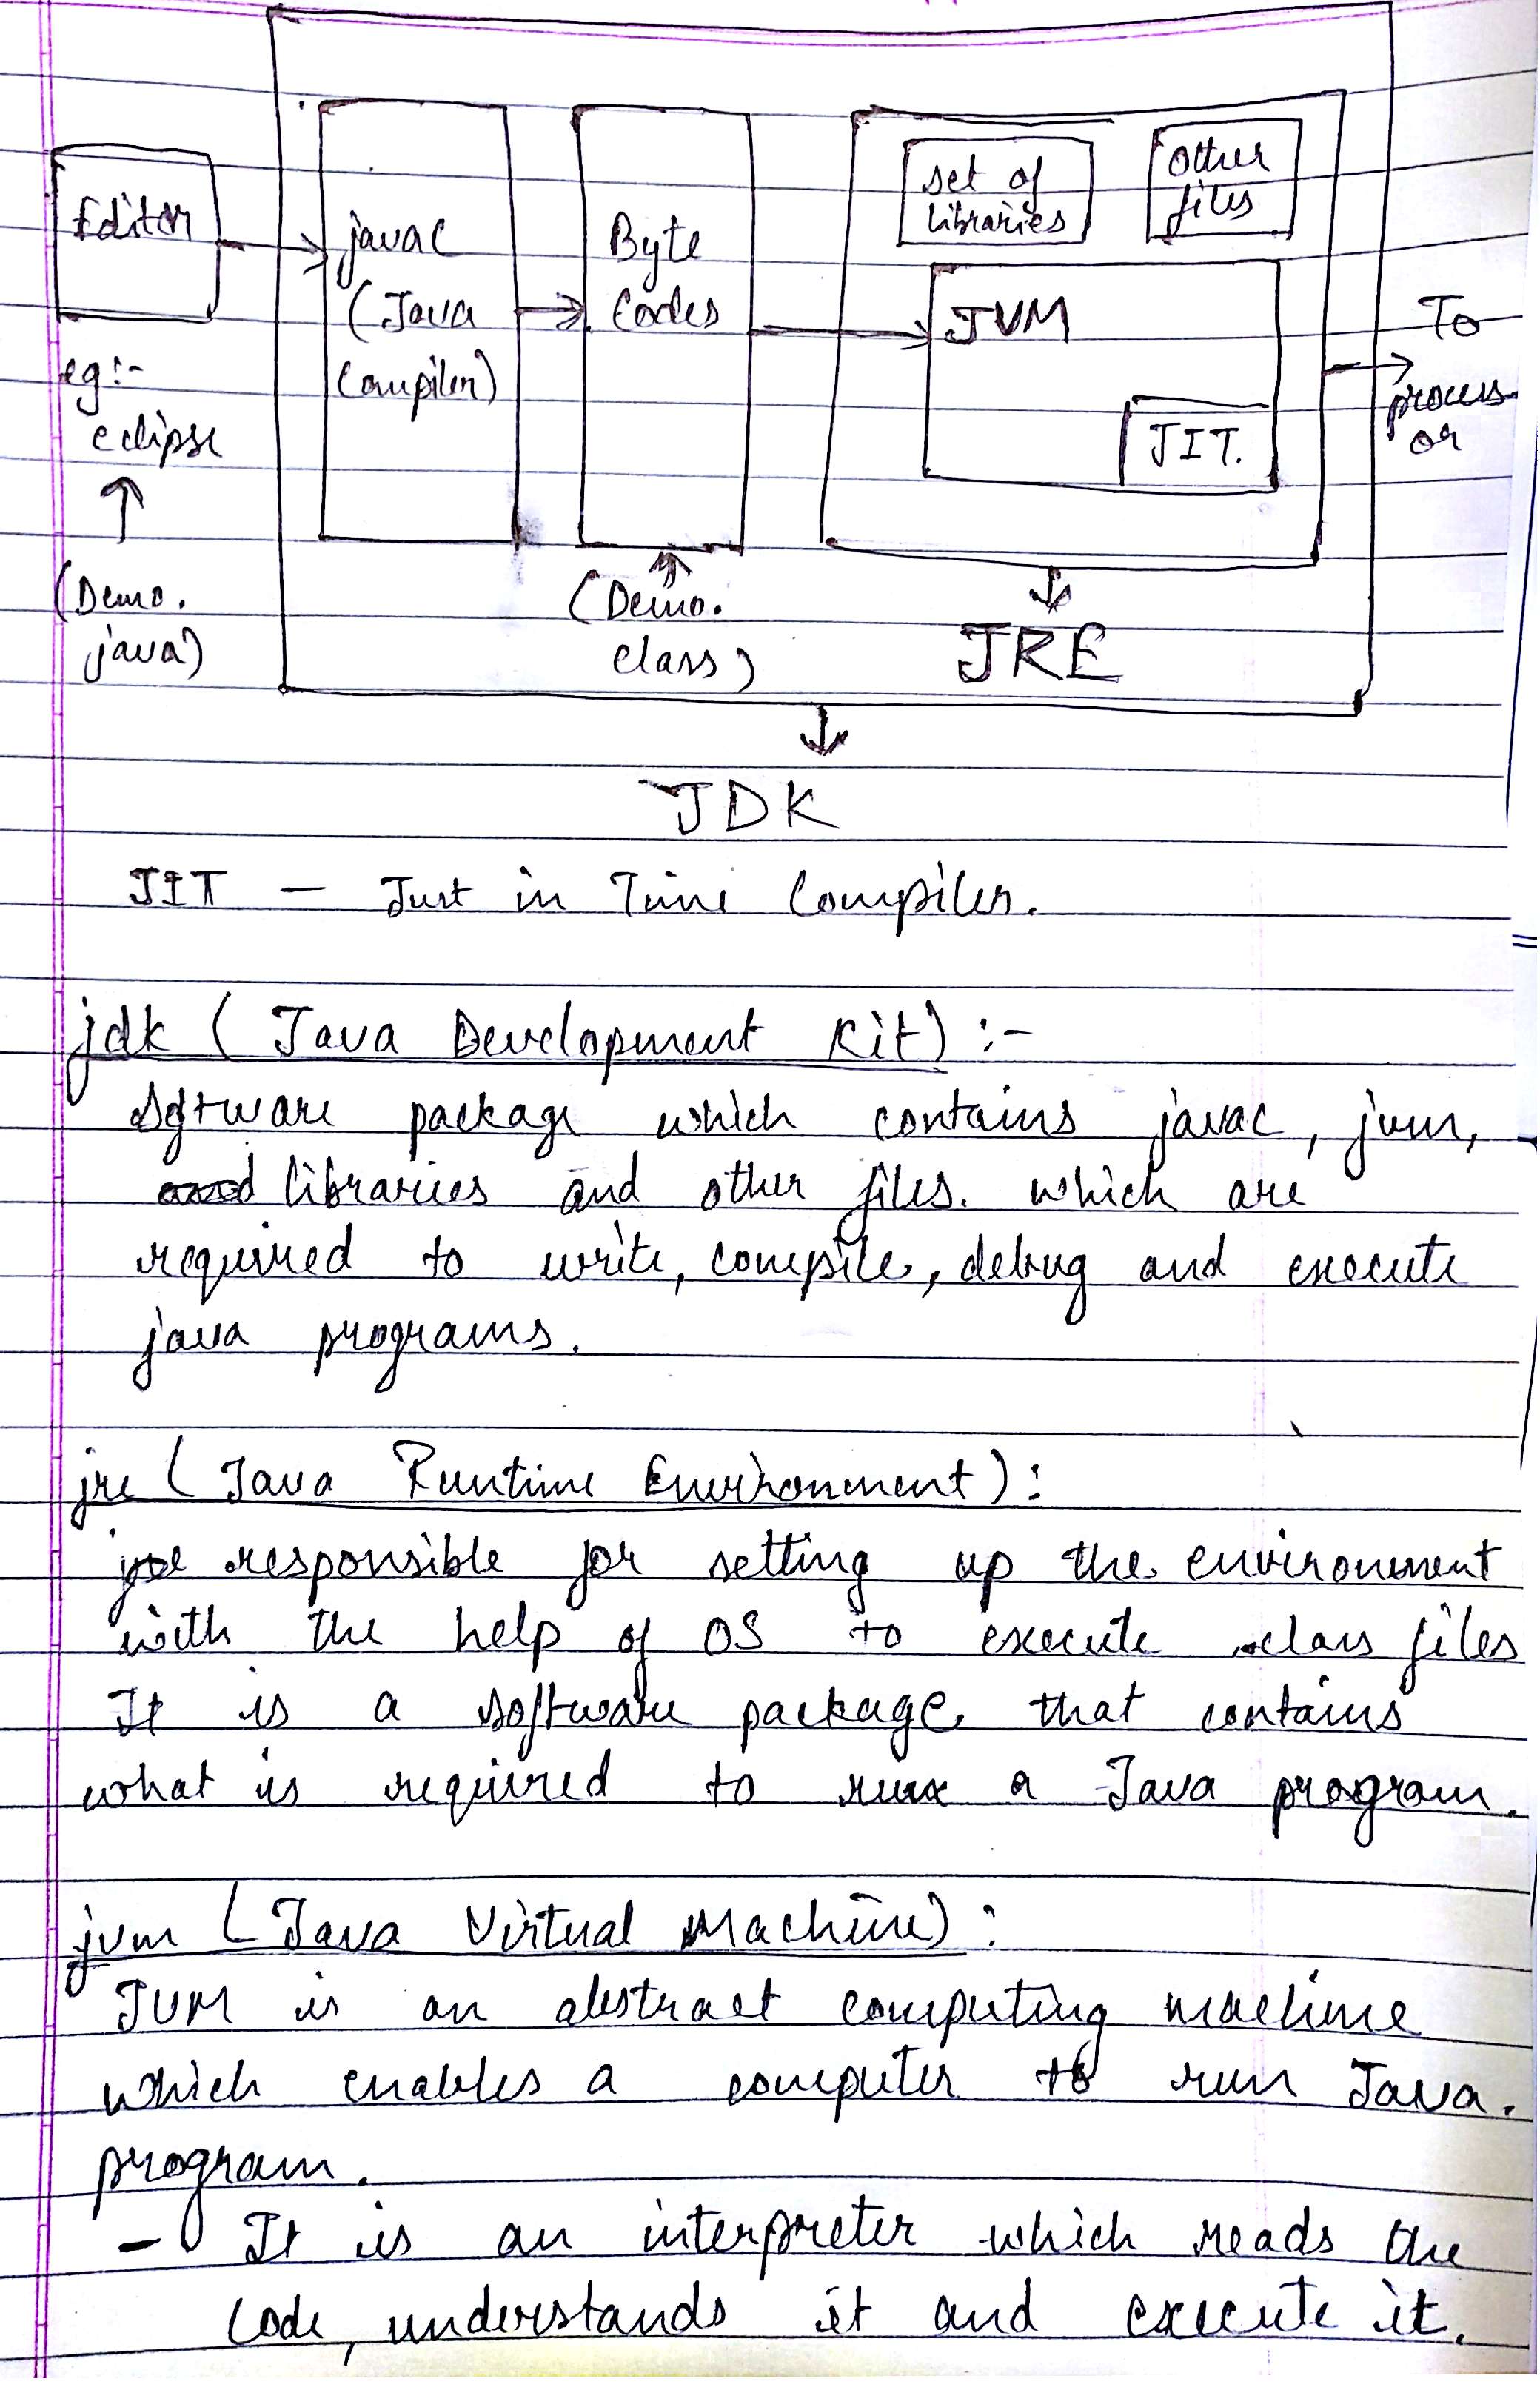 Editor
eg:-
eclipse
(Demo.
java)
javac
(Java
Compiler)
Byte
Codes
(Demo.
class)
set of
libraries
other
files
JVM
JIT.
To
process-
or
JRE
JDK
JIT — Just in Time Compiler.
jdk ( Java Development Kit) :-
software package which contains javac, jvm,
libraries and other files. which are
required to write, compile, debug and execute
java programs.
jre ( Java Runtime Environment) :
responsible for setting up the environment
with the help of OS to execute .class files
It is a software package that contains
what is required to run a Java program.
jvm ( Java Virtual Machine) :
JVM is an abstract computing machine
which enables a computer to run Java.
program.
- It is an interpreter which reads the
code, understands it and execute it.